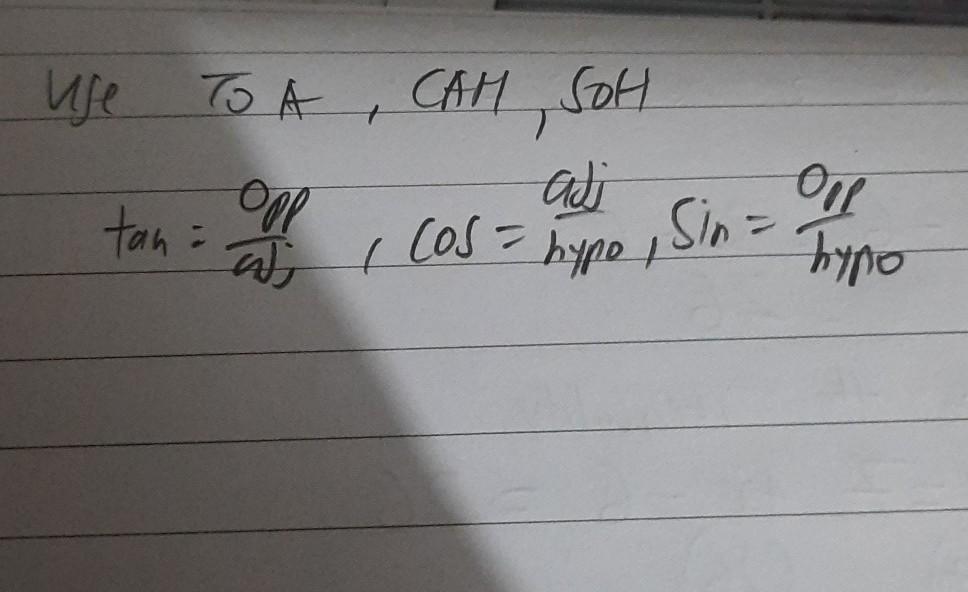 Use TOA, CAH, SOH
tan = opp/adj, cos = adj/hypo, sin = opp/hypo